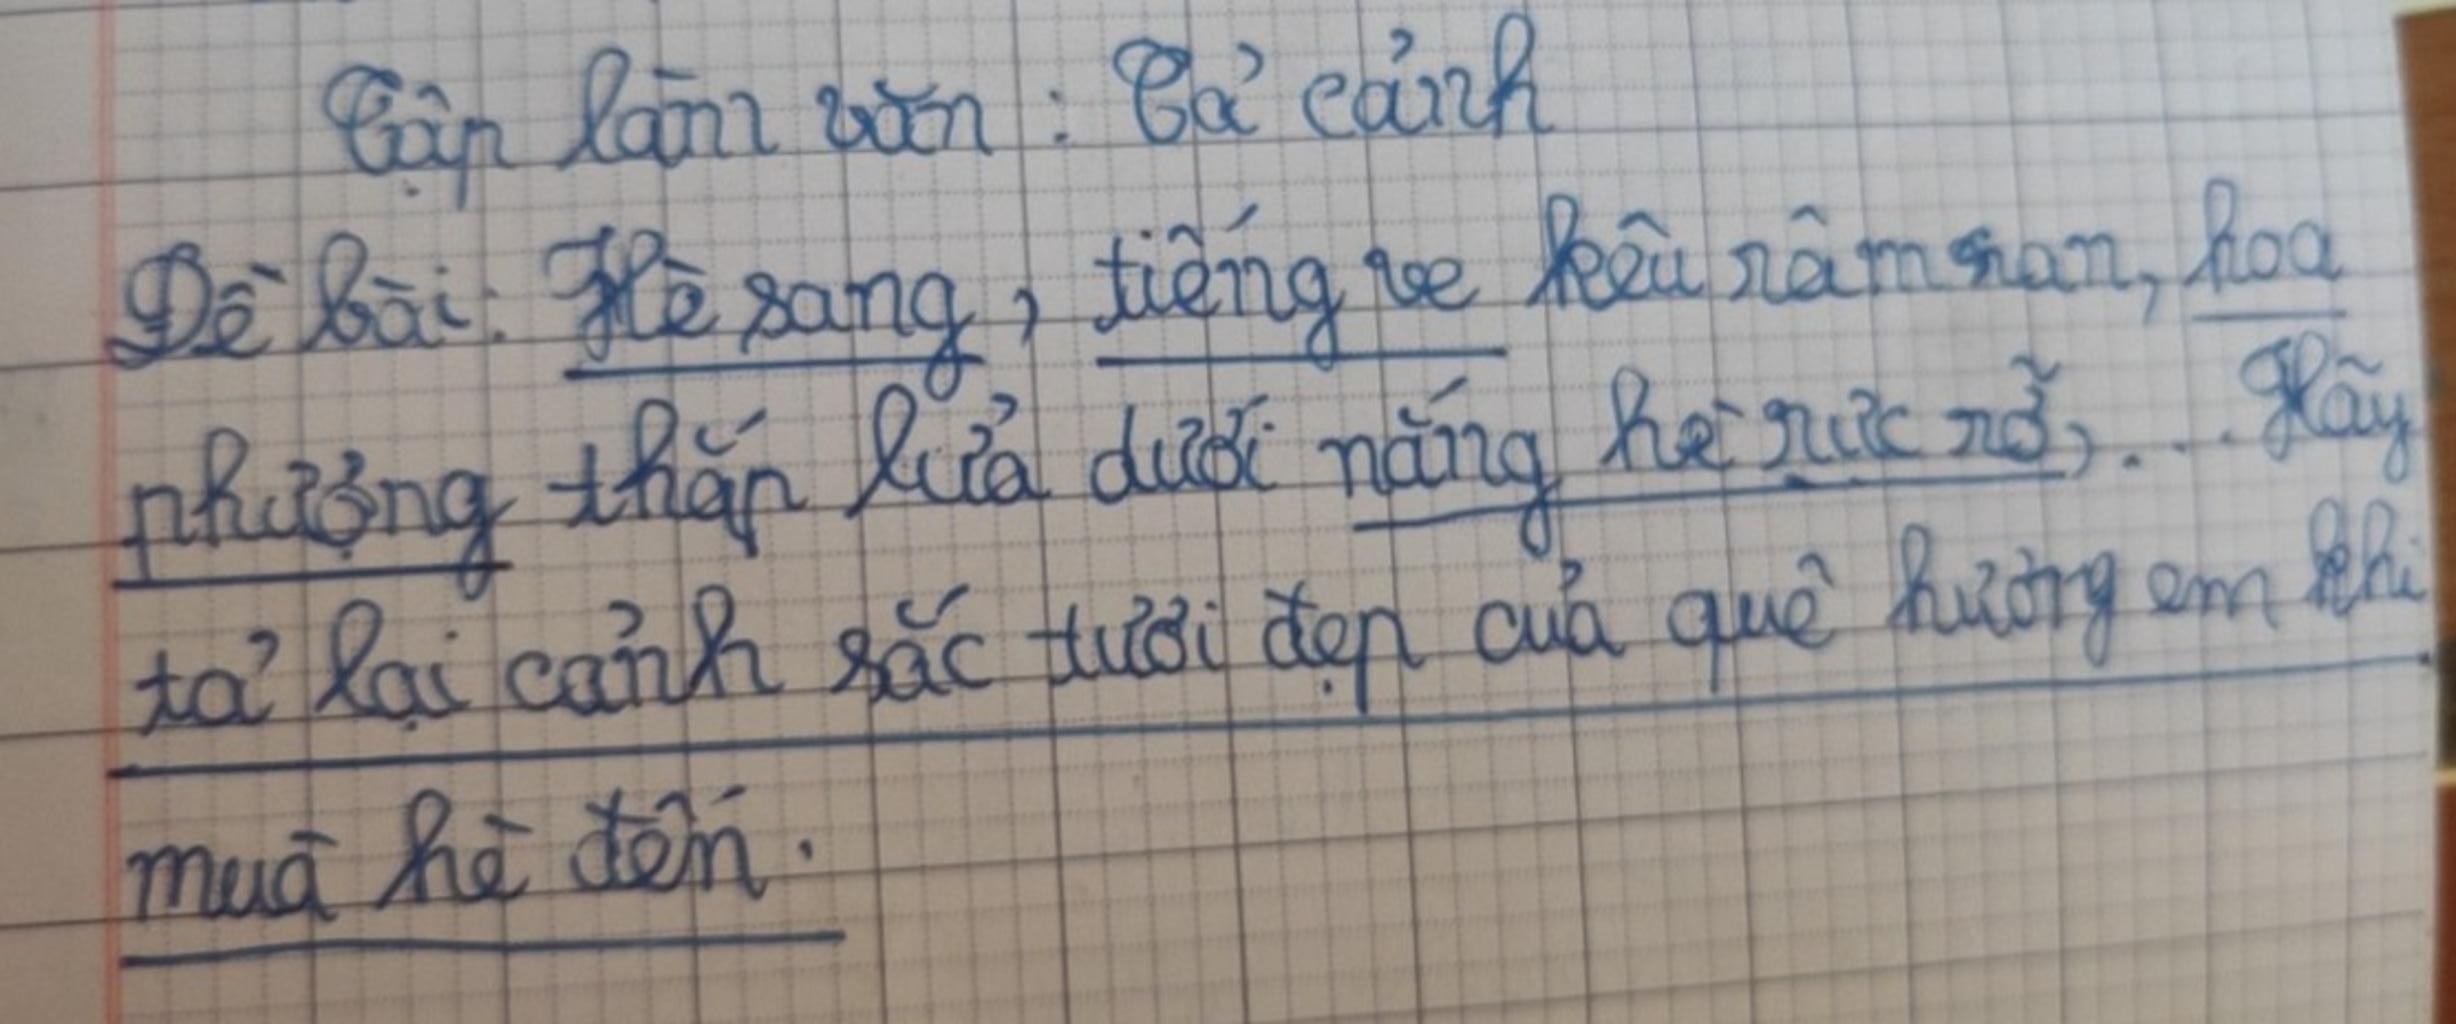 Tập làm văn : Tả cảnh
Đề bài: Hè sang, tiếng ve kêu râm ran, hoa
phượng thắp lửa dưới nắng hè rực rỡ,... Hãy
tả lại cảnh sắc tươi đẹp của quê hương em khi
muà hè đến.